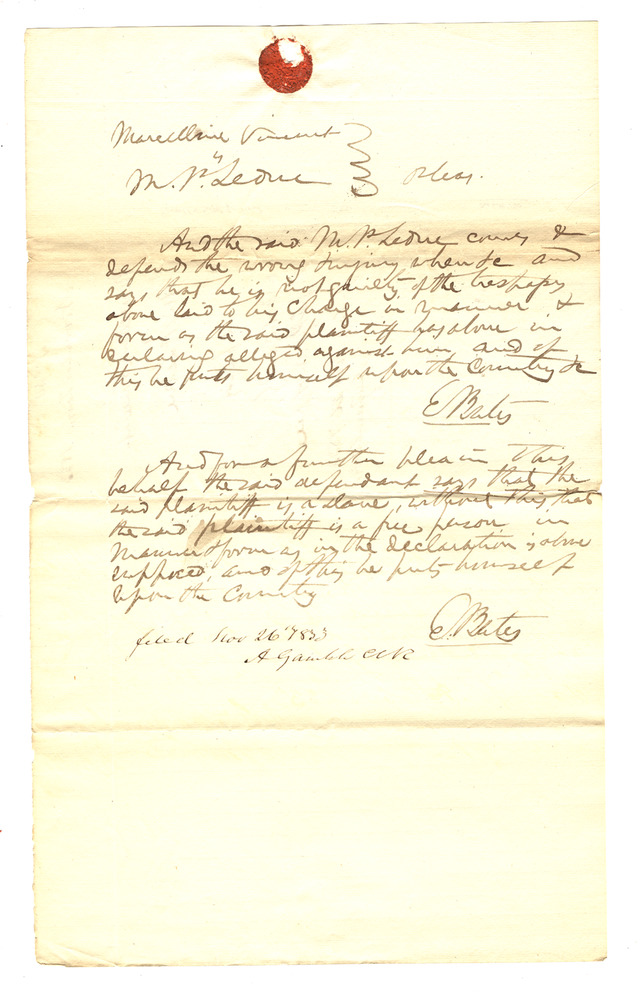 Marcelline Vincent
vs
M. P. Leduc } pleas.
And the said M. P. Leduc comes &
defends the wrong & injury when &c and
says that he is not guilty of the trespasses
above laid to his charge in manner &
form as the said plaintiff has above in
declaring alleged against him and of
this he puts himself upon the Country &c
E Bates
And for a further plea in this
behalf the said defendant says that the
said plaintiff is a slave, without this that
the said plaintiff is a free person in
manner & form as in the declaration is above
supposed, and of this he puts himself
upon the Country
E. Bates
filed Nov 26th 1833
A Gamble Clk